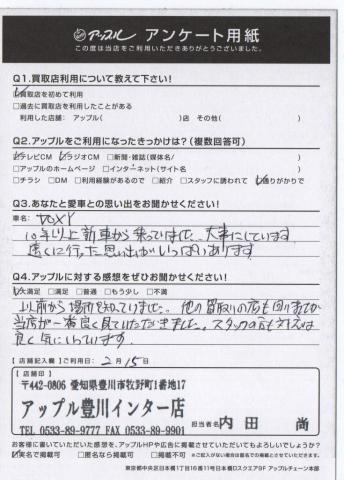 アップル アンケート用紙
この度は当店をご利用いただきありがとうございました。
Q1.買取店利用について教えて下さい!
☑買取店を初めて利用
□過去に買取店を利用したことがある
利用した店舗: アップル( )店 その他( )
Q2.アップルをご利用になったきっかけは?(複数回答可)
☑テレビCM ☑ラジオCM □新聞・雑誌(媒体名/ )
□アップルのホームページ □インターネット(サイト名 )
□チラシ □DM □利用経験があるので □紹介 □スタッフに誘われて ☑通りがかりで
Q3.あなたと愛車との思い出をお聞かせください!
車名: VOXY
10年以上新車から乗っていました。大事にしています
遠くに行った思い出がいっぱいあります
Q4.アップルに対する感想をぜひお聞かせください!
☑大満足 □満足 □普通 □もう少し □不満
以前から場所を知っていました。他の買取りの店も回りましたが
当店が一番良く見ていただきました。スタッフの方も対応は
良く気にいっています。
【 店舗記入欄 】ご利用日: 2月15日
【 店舗印 】
〒442-0806 愛知県豊川市牧野町1番地17
アップル豊川インター店
TEL 0533-89-9777 FAX 0533-89-9901
担当者名 内田 尚
お客様に書いていただいた感想を、アップルHPや広告に掲載させていただいてもよろしいでしょうか?
☑実名で掲載可 □匿名なら掲載可 □掲載不可 ※ご記入がない場合は匿名での掲載とさせていただきます。
東京都中央区日本橋1丁目16番11号日本橋Dスクエア9F アップルチェーン本部